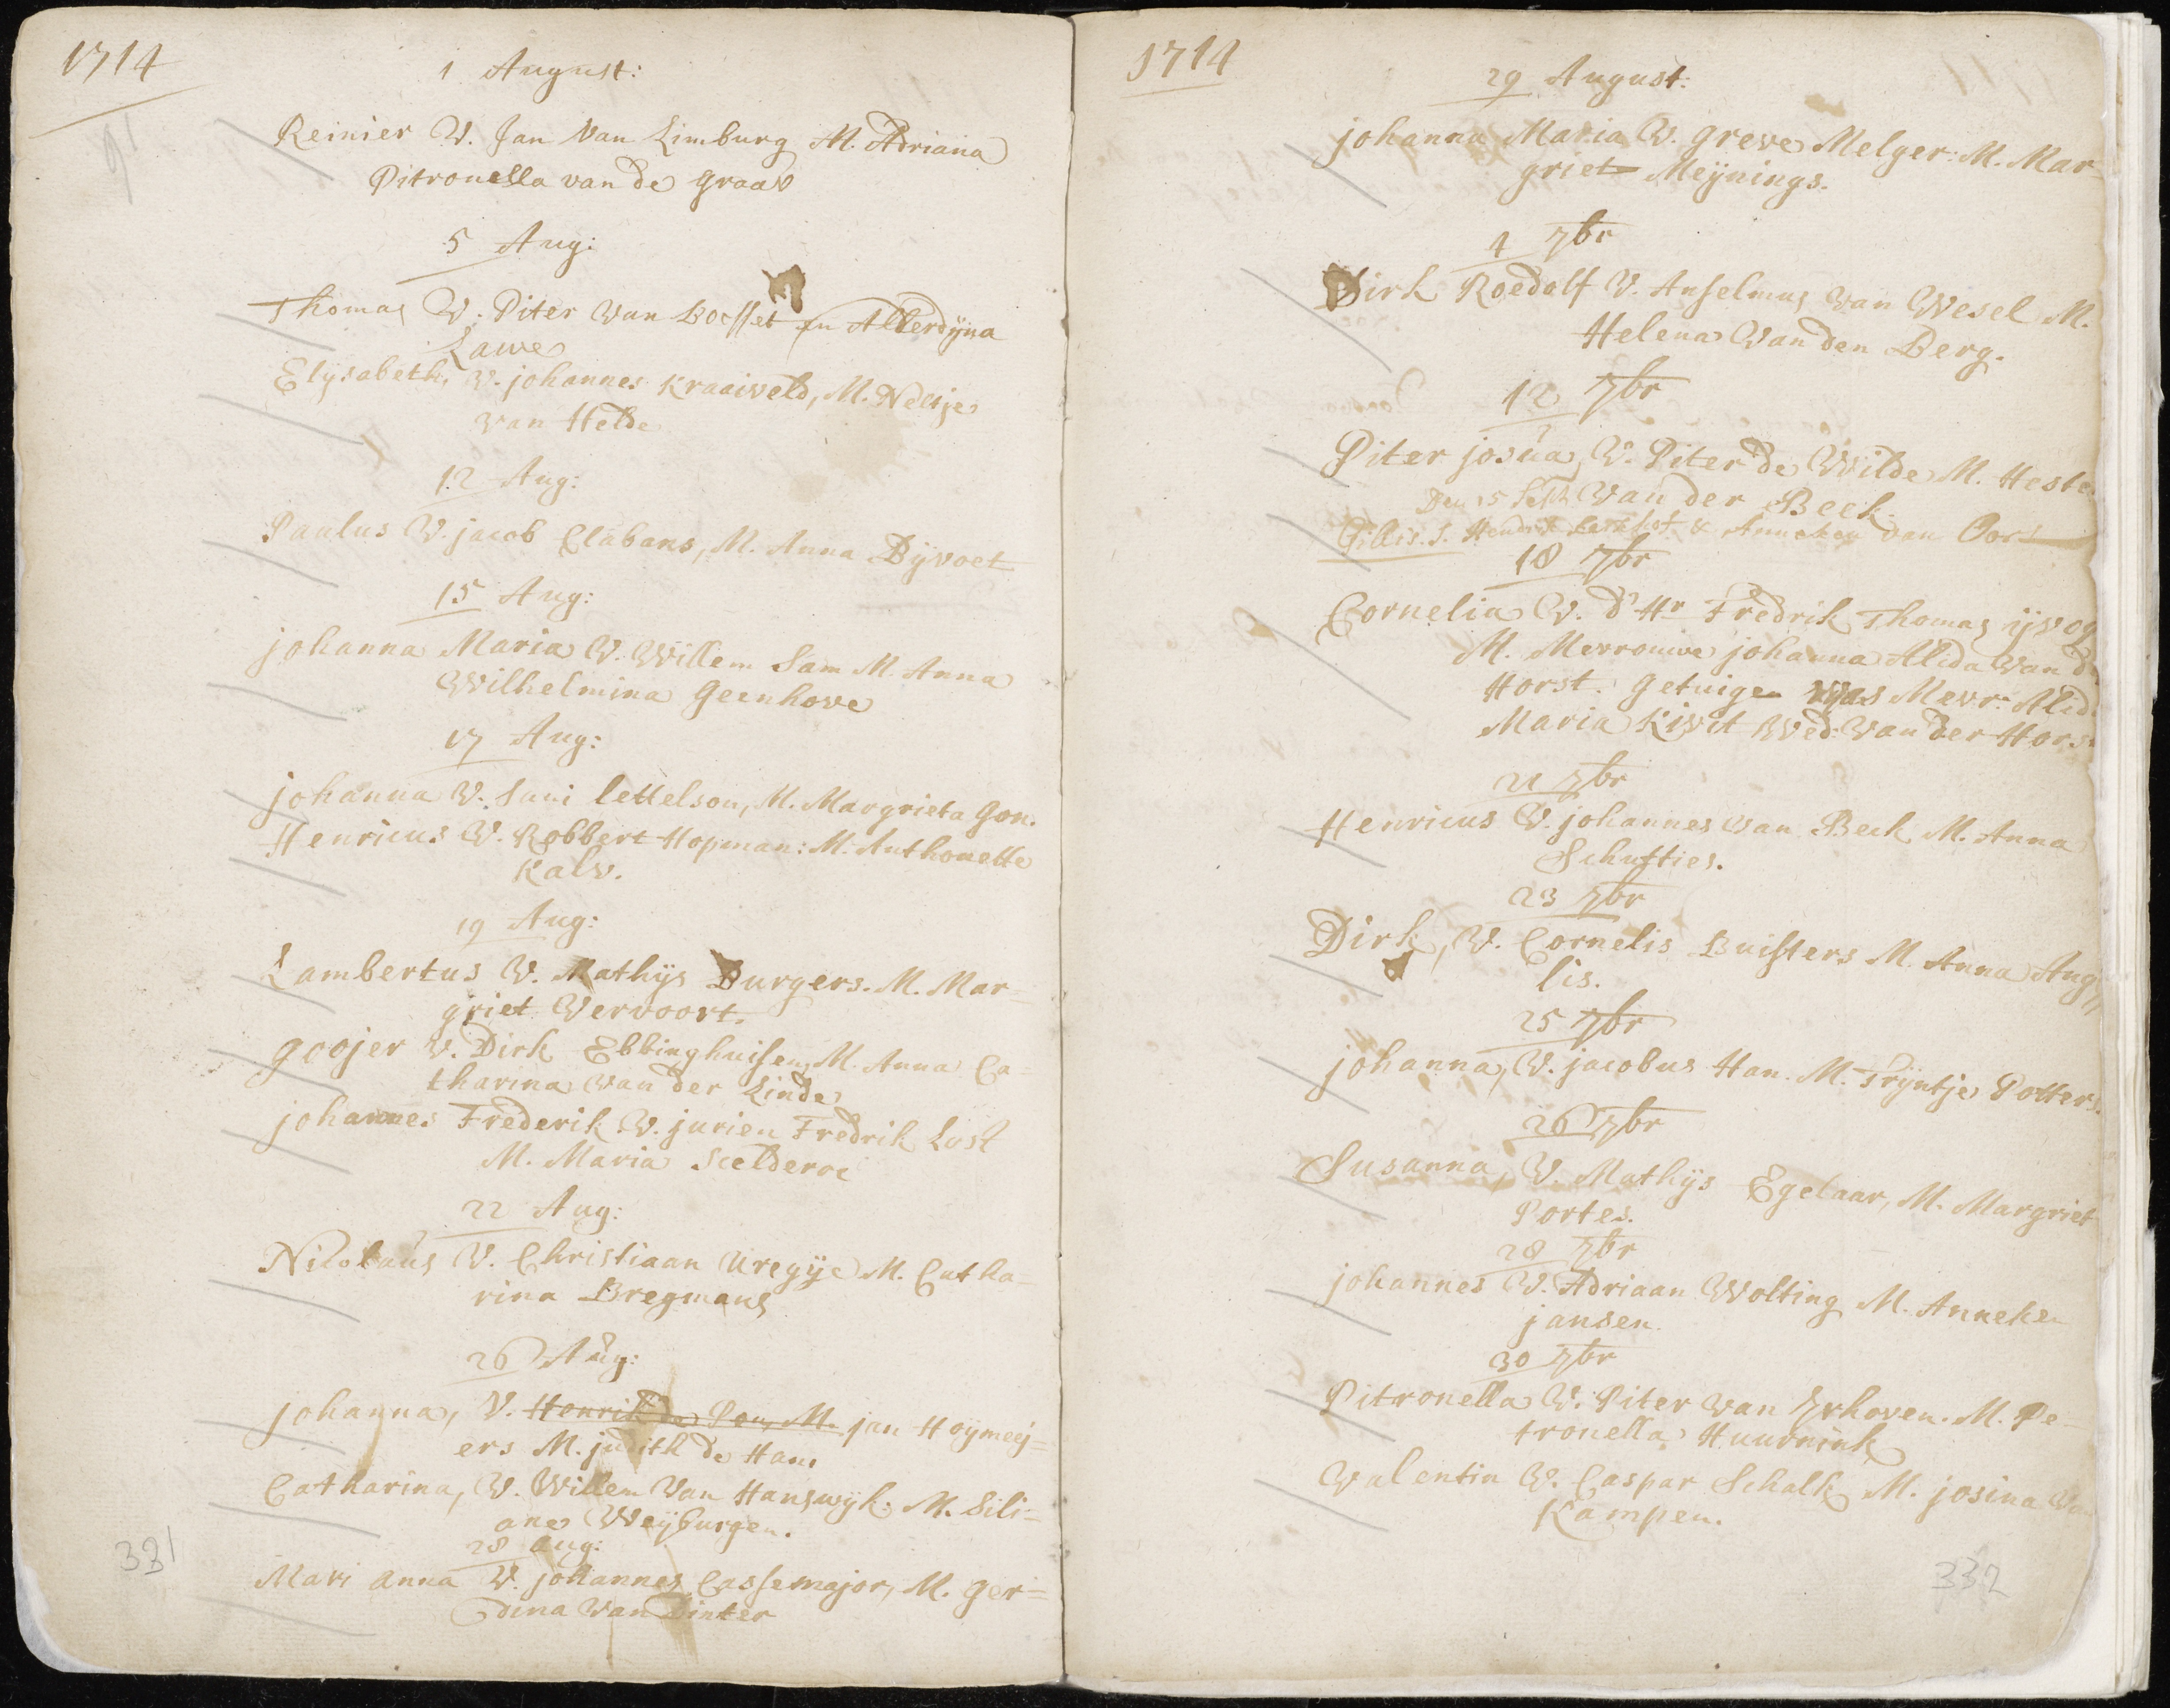 1714
1 August:
Reinier V. Jan Van Limburg M. Adriana
Pitronella van de graav
5 Aug:
Thomas V. Piter Van en Allerdijna
Lawe
Elysabeth, V. johannes Kraaiveld, M. Neesje
van Helde
12 Aug:
Paulus V. jacob Clabans, M. Anna Bijvoet
15 Aug:
johanna Maria V. Willem Sam M. Anna
Wilhelmina Geenhove
17 Aug:
johanna V. lettelson, M. Margrieta Gon.
Henricus V. Robbert Hopman: M. Anthonette
Kalv.
19 Aug:
Lambertus V. Mathijs Burgers. M. Mar=
griet Vervoort.
Goojer V. Dirk Ebbinghuisen, M. Anna Ca-
tharina Van der Linde
johannes Frederik V. jurien Fredrik Lost
M. Maria Scelderoe
22 Aug:
Nicolaus V. Christiaan M. Catha-
rina Bregmans
26 Aug:
johanna, V. Henrik de Pau, M. jan Hoymeij=
ers M. judith de Han.
Catharina, V. Willem Van Hanswyk: M. Sili=
ane Weyburgen.
28 Aug:
Mari anna V. johannes Cassemajor, M. ger=
dina Van Dinter
331
1714
29 August:
johanna Maria V. greve Melger: M. Mar-
griet Meijnings.
1 7br
Dirk Roedolf V. Anselmus van Wesel M.
Helena Van den Berg.
12 7br
Piter josua, V. Piter de Wilde M. Heste
Van der Beek.
Den 15 Sept
Gillis. S. Hendrik & Anneken van Oort
18 7br
Cornelia V. d'Hr Fredrik Thomas ijvog
M. Mevrouwe johanna Alida Van d
Horst. Getuige was Mevr: Alid
Maria Kivit Wed: Van der Hors
21 7br
Henricus V. johannes van Beek M. Anna
Schutties.
23 7br
Dirk, V. Cornelis Buisters M. Anna Aug
lis.
25 7br
johanna, V. jacobus Han. M. Trijntje Potters.
26 7br
Susanna, V. Mathijs Egelaar, M. Margriet
Portes.
28 7br
johannes V. Adriaan Wolting M. Anneken
jansen.
30 7br
Pitronella V. Piter van Erhoven. M. Pe-
tronella Huurnink
Valentin V. Caspar Schalk M. josina Van
Kampen.
332